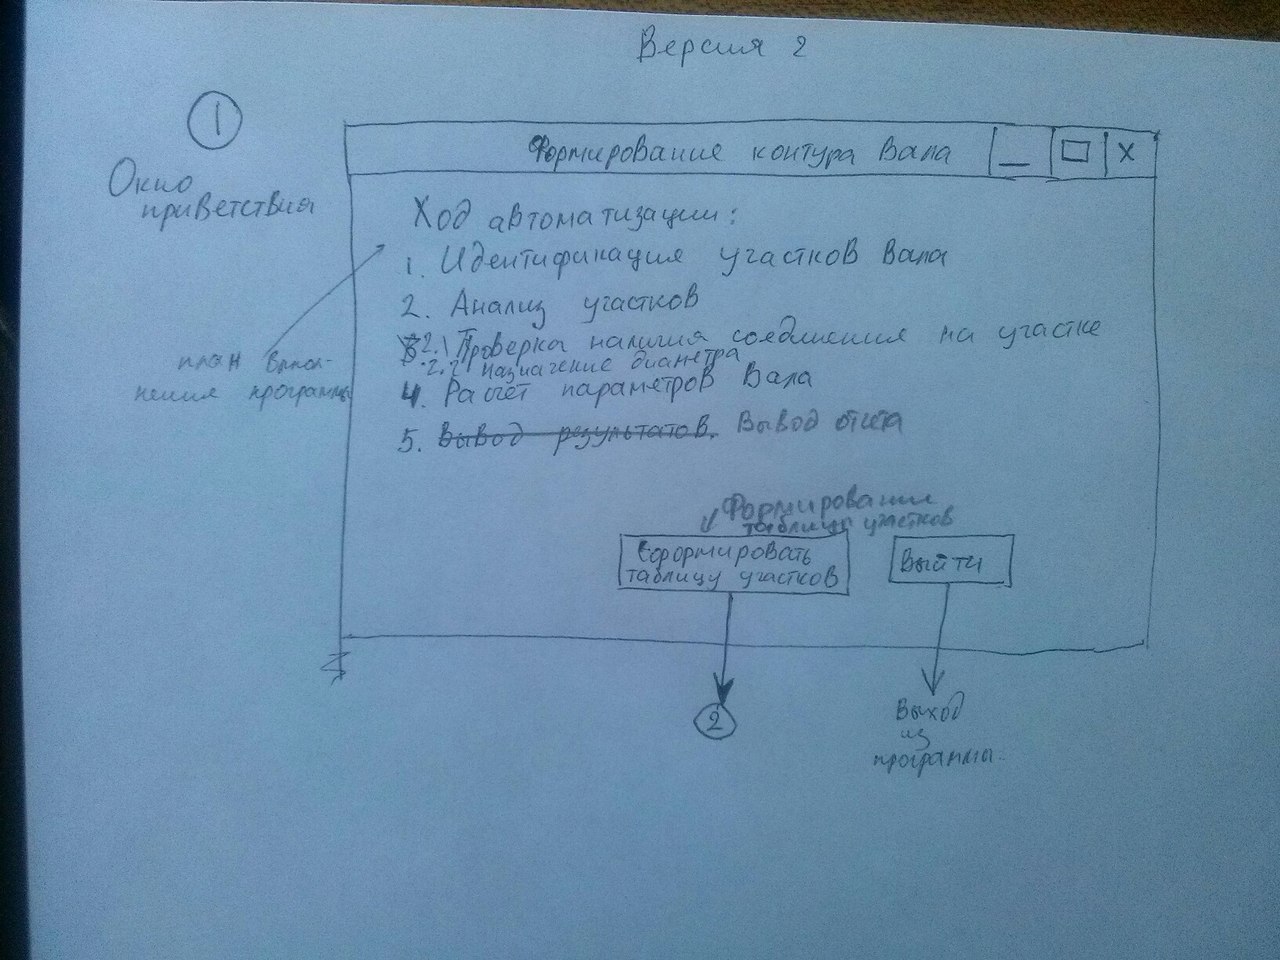 Версия 2
1
Окно
приветствия
Формирование контура вала _ X
Ход автоматизации:
1. Идентификация участков вала
2. Анализ участков
2.1 Проверка наличия соединения на участке
2.2 Назначение диаметра
план выпол-
нения программы
4. Расчёт параметров вала
5. Вывод результатов. Вывод отчёта
Формирование
таблицы участков
Сформировать
таблицу участков
Выйти
2
Выход
из
программы.